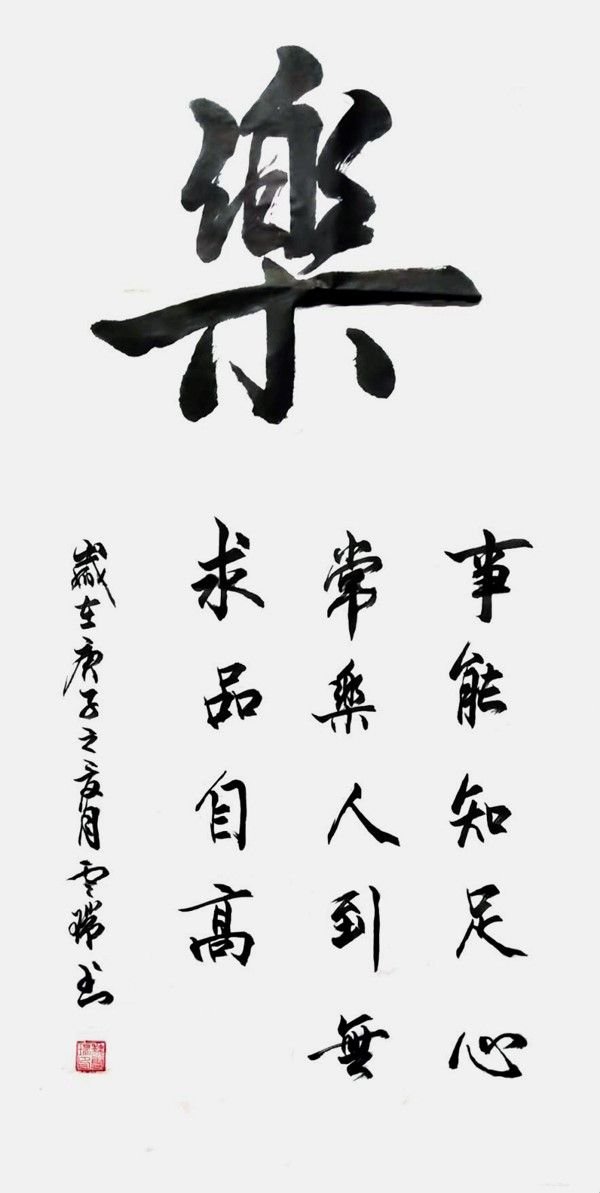 樂
事能知足心
常樂人到無
求品自高
歲在庚子之夏月雲瑞書